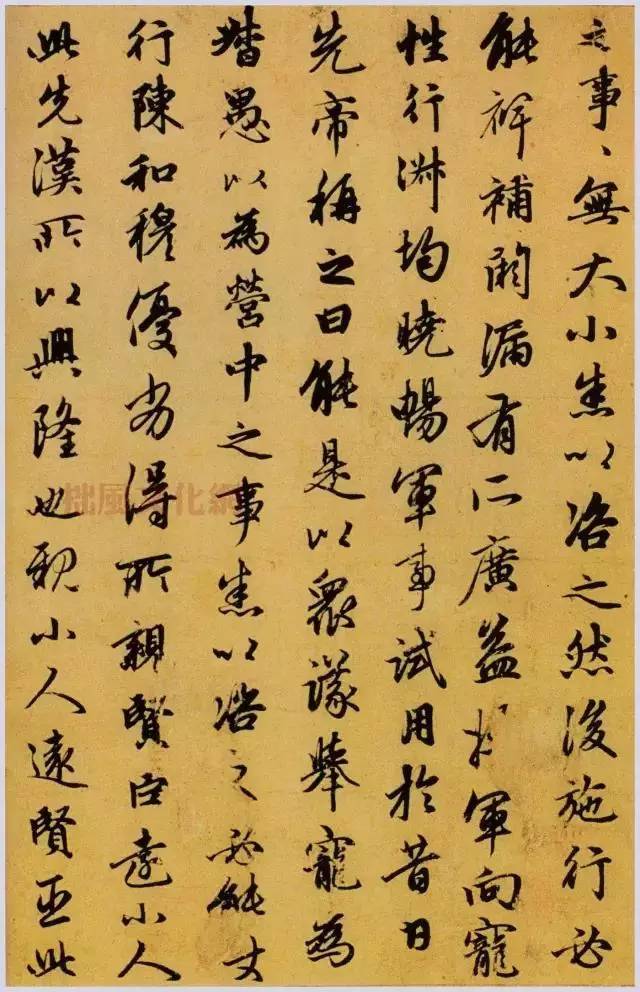 之事〻無大小悉以咨之然後施行必
能裨補闕漏有所廣益將軍向寵
性行淑均曉暢軍事試用於昔日
先帝稱之曰能是以衆議舉寵為
督愚以為營中之事悉以咨之必能
行陳和穆優劣得所親賢臣遠小人
此先漢所以興隆也親小人遠賢臣此
拙風文化網